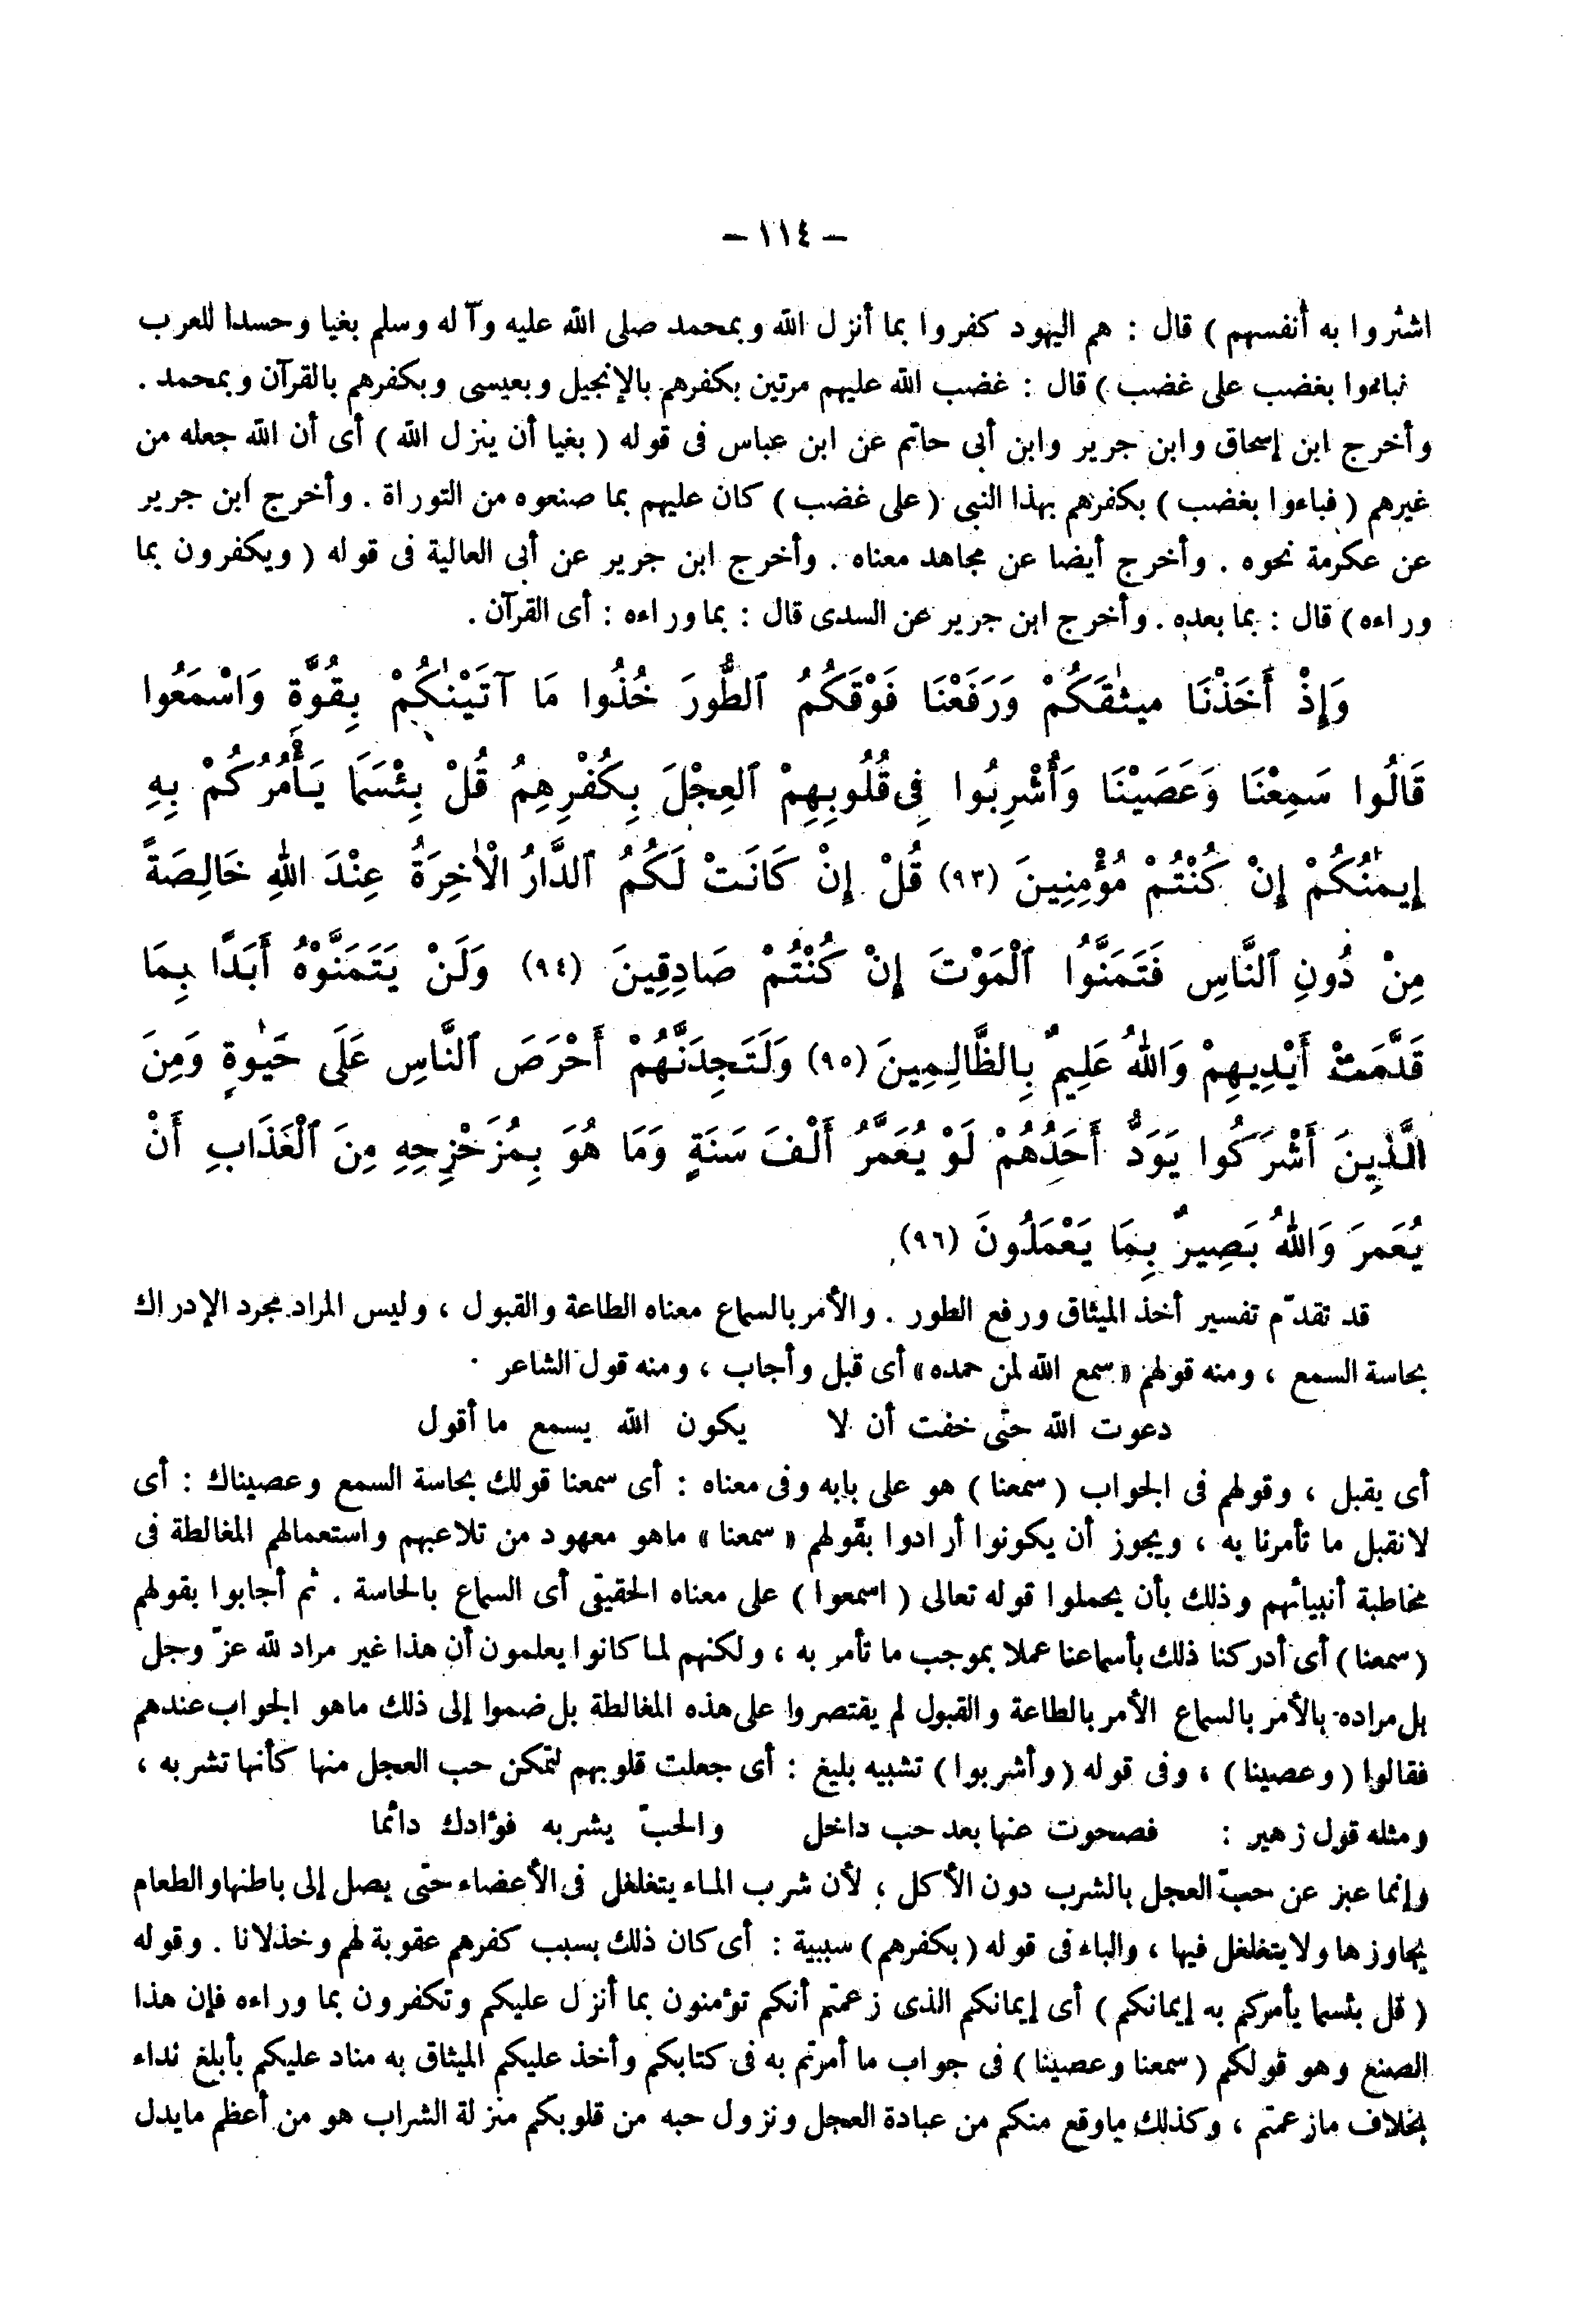 – ١١٤ –
اشتروا به أنفسهم ) قال : هم اليهود كفروا بما أنزل الله وبمحمد صلى الله عليه وآله وسلم بغيا وحسدا للعرب
فباءوا بغضب على غضب ) قال : غضب الله عليهم مرتين بكفرهم بالإنجيل وبعيسى وبكفرهم بالقرآن وبمحمد .
وأخرج ابن إسحاق وابن جرير وابن أبى حاتم عن ابن عباس فى قوله ( بغيا أن ينزل الله ) أى أن الله جعله من
غيرهم ( فباءوا بغضب ) بكفرهم بهذا النبى ( على غضب ) كان عليهم بما صنعوه من التوراة . وأخرج ابن جرير
عن عكرمة نحوه . وأخرج أيضا عن مجاهد معناه . وأخرج ابن جرير عن أبى العالية فى قوله ( ويكفرون بما
وراءه ) قال : بما بعده . وأخرج ابن جرير عن السدى قال : بما وراءه : أى القرآن .
وَإِذْ أَخَذْنَا مِيثَٰقَكُمْ وَرَفَعْنَا فَوْقَكُمُ ٱلطُّورَ خُذُوا مَا آتَيْنَٰكُمْ بِقُوَّةٍ وَاسْمَعُوا
قَالُوا سَمِعْنَا وَعَصَيْنَا وَأُشْرِبُوا فِى قُلُوبِهِمْ ٱلْعِجْلَ بِكُفْرِهِمُ قُلْ بِئْسَمَا يَأْمُرُكُمْ بِهِ
إِيمَٰنُكُمْ إِنْ كُنْتُمْ مُؤْمِنِينَ (٩٣) قُلْ إِنْ كَانَتْ لَكُمُ ٱلدَّارُ الْأٰخِرَةُ عِنْدَ اللهِ خَالِصَةً
مِنْ دُونِ ٱلنَّاسِ فَتَمَنَّوُا ٱلْمَوْتَ إِنْ كُنْتُمْ صَادِقِينَ (٩٤) وَلَنْ يَتَمَنَّوْهُ أَبَدًا بِمَا
قَدَّمَتْ أَيْدِيهِمْ وَاللهُ عَلِيمٌ بِالظَّالِمِينَ (٩٥) وَلَتَجِدَنَّهُمْ أَحْرَصَ ٱلنَّاسِ عَلَى حَيَٰوةٍ وَمِنَ
الَّذِينَ أَشْرَكُوا يَوَدُّ أَحَدُهُمْ لَوْ يُعَمَّرُ أَلْفَ سَنَةٍ وَمَا هُوَ بِمُزَحْزِحِهِ مِنَ ٱلْعَذَابِ أَنْ
يُعَمرَ وَاللهُ بَصِيرٌ بِمَا يَعْمَلُونَ (٩٦)
قد تقدّم تفسير أخذ الميثاق ورفع الطور . والأمر بالسماع معناه الطاعة والقبول ، وليس المراد مجرد الإدراك
بحاسة السمع ، ومنه قولهم « سمع الله لمن حمده » أى قبل وأجاب ، ومنه قول الشاعر .
دعوت الله حتى خفت أن لا يكون الله يسمع ما أقول
أى يقبل ، وقولهم فى الجواب ( سمعنا ) هو على بابه وفى معناه : أى سمعنا قولك بحاسة السمع وعصيناك : أى
لانقبل ما تأمرنا به ، ويجوز أن يكونوا أرادوا بقولهم « سمعنا » ماهو معهود من تلاعبهم واستعمالهم المغالطة فى
مخاطبة أنبيائهم وذلك بأن يحملوا قوله تعالى ( اسمعوا ) على معناه الحقيقى أى السماع بالحاسة . ثم أجابوا بقولهم
( سمعنا ) أى أدركنا ذلك بأسماعنا عملا بموجب ما تأمر به ، ولكنهم لما كانوا يعلمون أن هذا غير مراد لله عزّ وجل
بل مراده بالأمر بالسماع الأمر بالطاعة والقبول لم يقتصروا على هذه المغالطة بل ضموا إلى ذلك ماهو الجواب عندهم
فقالوا ( وعصينا ) ، وفى قوله ( وأشربوا ) تشبيه بليغ : أى جعلت قلوبهم لتمكن حب العجل منها كأنها تشربه ،
ومثله قول زهير : فصحوت عنها بعد حب داخل والحبّ يشربه فؤادك دائما
وإنما عبر عن حبّ العجل بالشرب دون الأكل ؛ لأن شرب الماء يتغلغل فى الأعضاء حتى يصل إلى باطنها والطعام
يجاوزها ولا يتغلغل فيها ، والباء فى قوله ( بكفرهم ) سببية : أى كان ذلك بسبب كفرهم عقوبة لهم وخذلانا . وقوله
( قل بئسما يأمركم به إيمانكم ) أى إيمانكم الذى زعمتم أنكم تؤمنون بما أنزل عليكم وتكفرون بما وراءه فإن هذا
الصنع وهو قولكم ( سمعنا وعصينا ) فى جواب ما أمرتم به فى كتابكم وأخذ عليكم الميثاق به مناد عليكم بأبلغ نداء
بخلاف مازعمتم ، وكذلك ماوقع منكم من عبادة العجل ونزول حبه من قلوبكم منزلة الشراب هو من أعظم مايدل